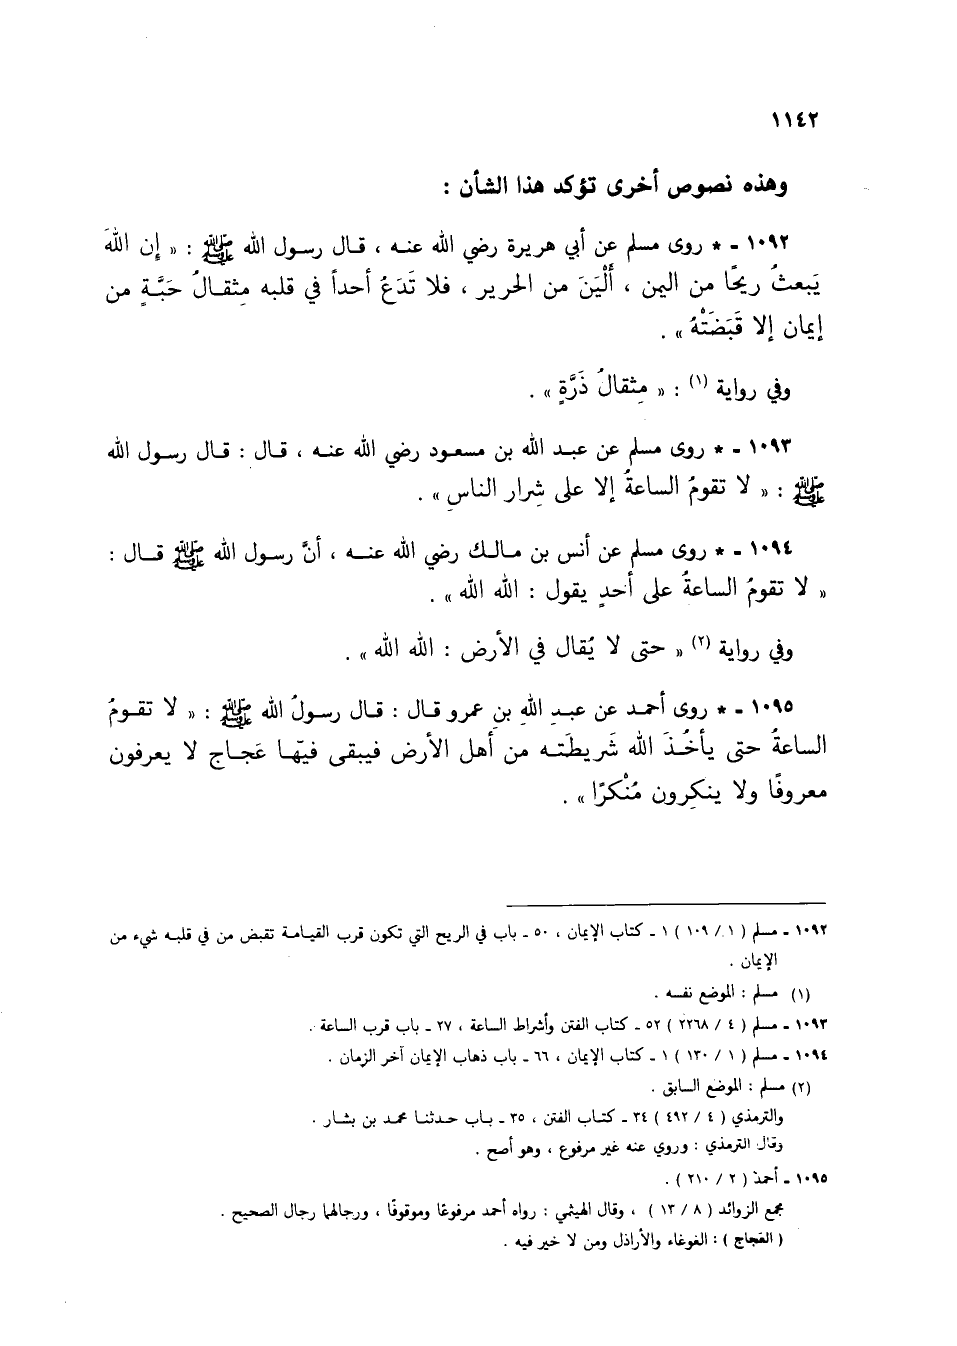 ١١٤٢
وهذه نصوص أخرى تؤكد هذا الشأن :
١٠٩٢ - * روى مسلم عن أبي هريرة رضي الله عنه ، قال رسول الله ﷺ : « إن اللهَ
يَبعثُ ريحًا من اليمن ، أَلْيَنَ من الحرير ، فلا تَدَعُ أحداً في قلبه مثقالُ حَبَّةٍ من
إيمان إلا قَبَضَتْهُ » .
وفي رواية (١) : « مِثقالُ ذَرَّةٍ » .
١٠٩٣ - * روى مسلم عن عبد الله بن مسعود رضي الله عنه ، قال : قال رسول الله
ﷺ : « لا تقومُ الساعةُ إلا على شِرار الناسِ » .
١٠٩٤ - * روى مسلم عن أنس بن مالك رضي الله عنه ، أنَّ رسول الله ﷺ قال :
« لا تقومُ الساعةُ على أحدٍ يقول : الله الله » .
وفي رواية (٢) « حتى لا يُقال في الأرض : الله الله » .
١٠٩٥ - * روى أحمد عن عبدِ الله بنِ عمرو قال : قال رسولُ الله ﷺ : « لا تقومُ
الساعةُ حتى يأخُذَ الله شَريطَتَه من أهل الأرض فيبقى فيّها عَجاج لا يعرفون
معروفًا ولا ينكِرون مُنْكرًا » .
١٠٩٢ - مسلم ( ١ / ١٠٩ ) ١ - كتاب الإيمان ، ٥٠ - باب في الريح التي تكون قرب القيامة تقبض من في قلبه شيء من
الإيمان .
(١) مسلم : الموضع نفسه .
١٠٩٣ - مسلم ( ٤ / ٢٢٦٨ ) ٥٢ - كتاب الفتن وأشراط الساعة ، ٢٧ - باب قرب الساعة .
١٠٩٤ - مسلم ( ١ / ١٣٠ ) ١ - كتاب الإيمان ، ٦٦ - باب ذهاب الإيمان آخر الزمان .
(٢) مسلم : الموضع السابق .
والترمذي ( ٤ / ٤٩٢ ) ٣٤ - كتاب الفتن ، ٣٥ - باب حدثنا محمد بن بشار .
وقال الترمذي : وروي عنه غير مرفوع ، وهو أصح .
١٠٩٥ - أحمد ( ٢ / ٢١٠ ) .
مجمع الزوائد ( ٨ / ١٣ ) ، وقال الهيثمي : رواه أحمد مرفوعًا وموقوفًا ، ورجالهما رجال الصحيح .
( العَجاج ) : الغوغاء والأراذل ومن لا خير فيه .